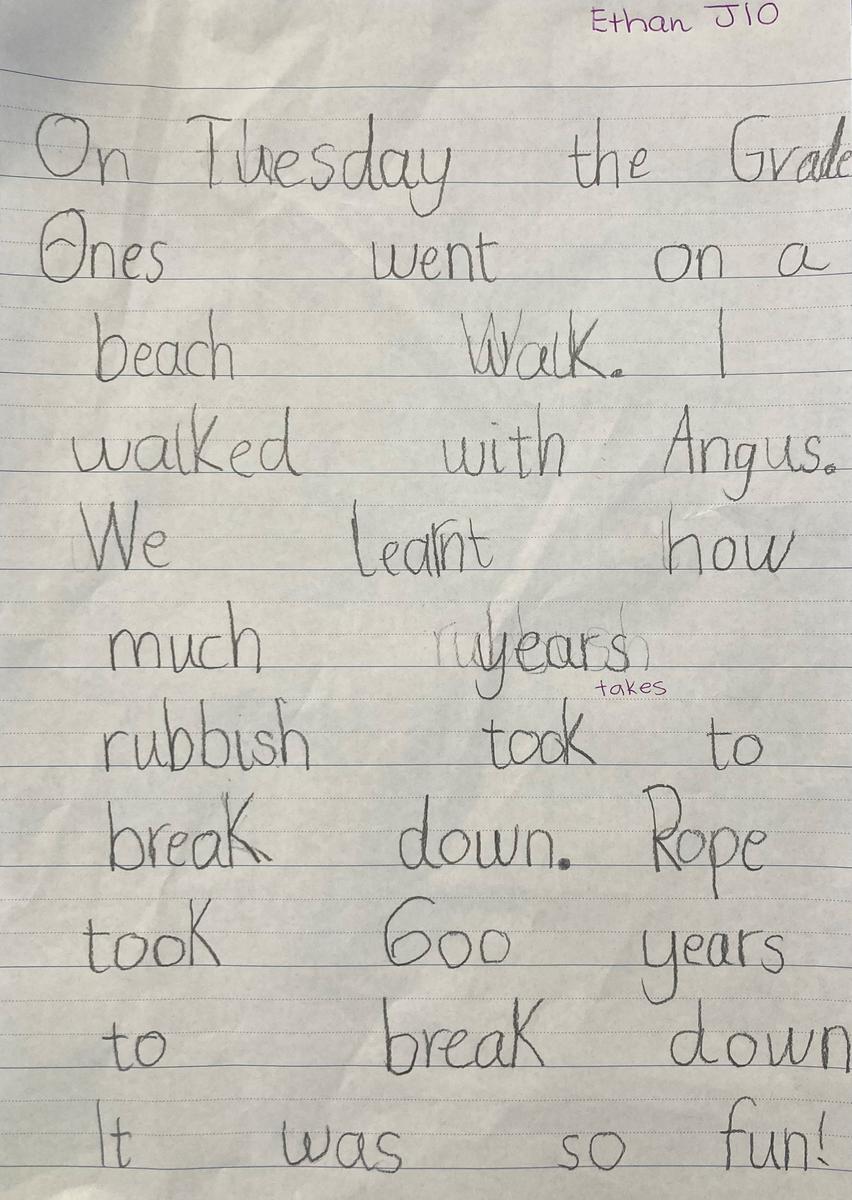 Ethan J10
On Tuesday the Grade
Ones went on a
beach Walk. I
walked with Angus.
We learnt how
much years
takes
rubbish took to
break down. Rope
took 600 years
to break down
It was so fun!